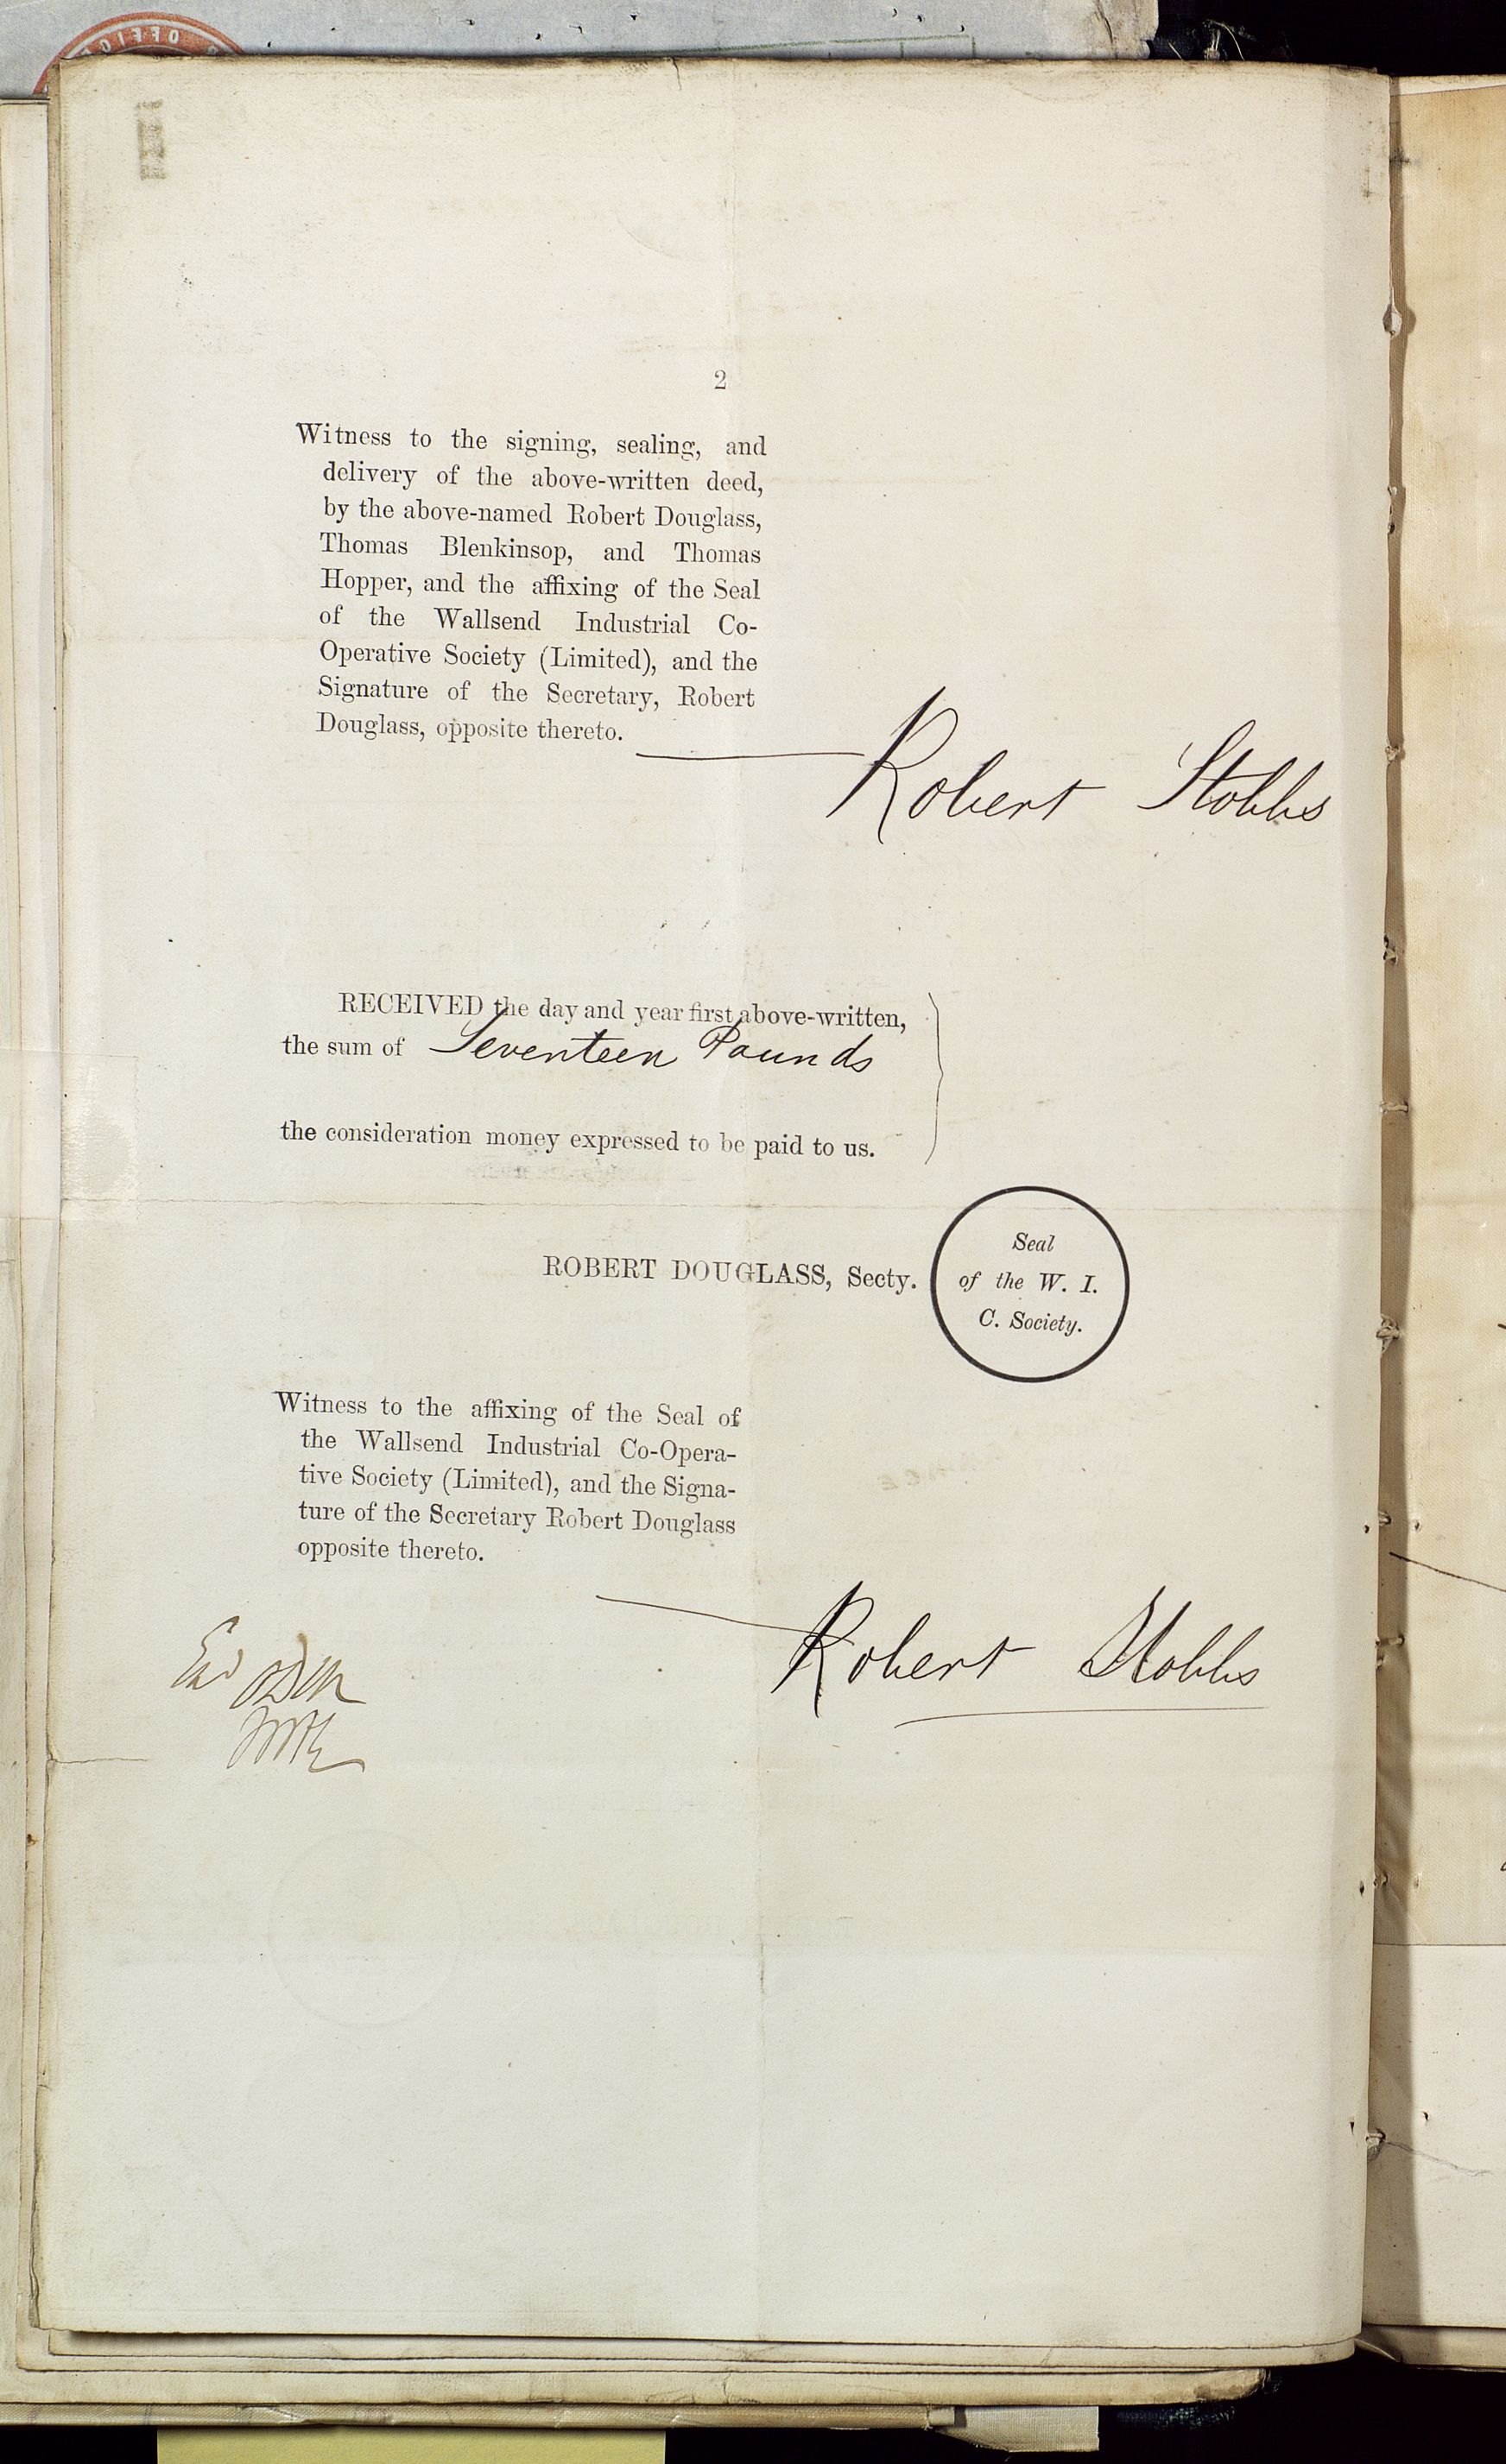 2
Witness to the signing, sealing, and
delivery of the above-written deed,
by the above-named Robert Douglass,
Thomas Blenkinsop, and Thomas
Hopper, and the affixing of the Seal
of the Wallsend Industrial Co-
Operative Society (Limited), and the
Signature of the Secretary, Robert
Douglass, opposite thereto.
Robert Stobbs
RECEIVED the day and year first above-written,
the sum of Seventeen Pounds
the consideration money expressed to be paid to us.
ROBERT DOUGLASS, Secty.
Seal
of the W. I.
C. Society.
Witness to the affixing of the Seal of
the Wallsend Industrial Co-Opera-
tive Society (Limited), and the Signa-
ture of the Secretary Robert Douglass
opposite thereto.
Robert Stobbs